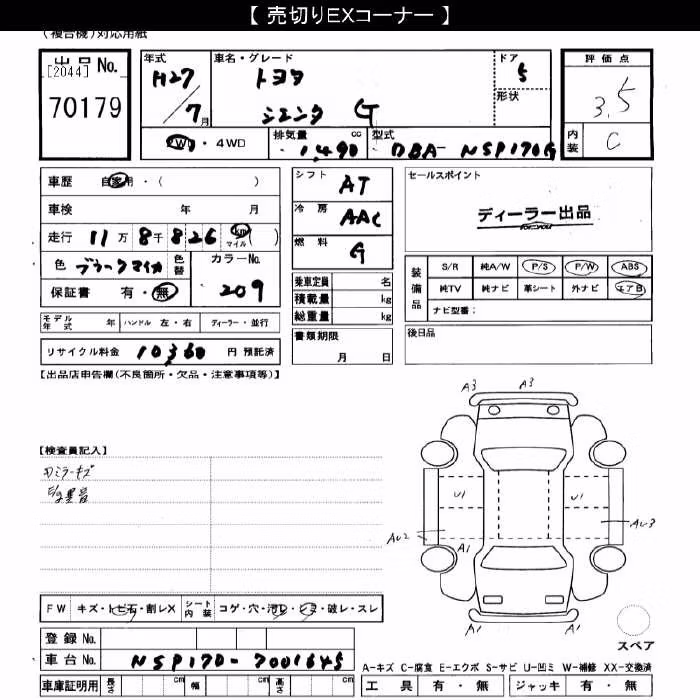 【 売切りEXコーナー 】
(複合機)対応用紙
出品 No.
[2044]
70179
年式 H27/7月
車名・グレード トヨタ シエンタ G
ドア 5
形状
評価点 3.5
内装 C
2WD・4WD
排気量 1,490 cc
型式 DBA-NSP170G
車歴 自家用・( )
車検 年 月
走行 11万8千826 km マイル ( )
色 ブラックマイカ 色替
カラーNo. 209
保証書 有・無
モデル年式 年 ハンドル 左・右 ディーラー・並行
リサイクル料金 10360 円 預託済
シフト AT
冷房 AAC
燃料 G
乗車定員 名
積載量 kg
総重量 kg
書類期限 月 日
セールスポイント
ディーラー出品
装備品 S/R 純A/W P/S P/W ABS
純TV 純ナビ 革シート 外ナビ エアB
ナビ型番:
後日品
【出品店申告欄(不良箇所・欠品・注意事項等)】
【検査員記入】
ミラーキズ
A3 A3
U1 U1
AU2 AU3
A1
A1 A1
スペア
FW キズ・トビ石・割レX シート内装 コゲ・穴・汚レ・シミ・破レ・スレ
登録 No.
車台 No. NSP170-7001645
車庫証明用 長さ cm 幅 cm 高さ cm
A-キズ C-腐食 E-エクボ S-サビ U-凹ミ W-補修 XX-交換済
工具 有・無 ジャッキ 有・無